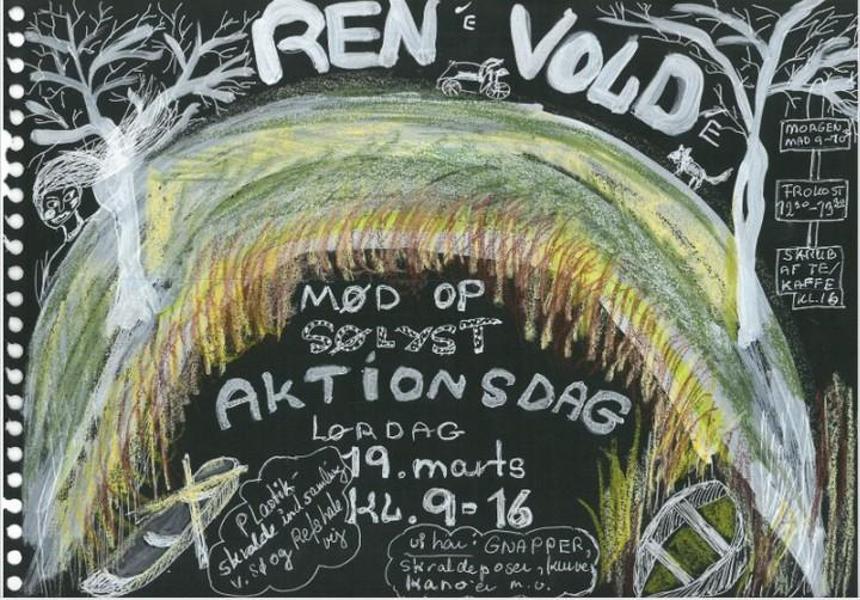 REN É VOLD É
MORGEN
MAD 9-10
FROKOST
12³⁰-13³⁰
SKRUB
AF TE/
KAFFE
KL.16
MØD OP
SØLYST
AKTIONSDAG
LØRDAG
19. marts
KL. 9-16
Plastik-
skralde indsamling
v. SØ og Refshale
vej
vi har: GNAPPER,
skraldeposer,
kano'er m.v.